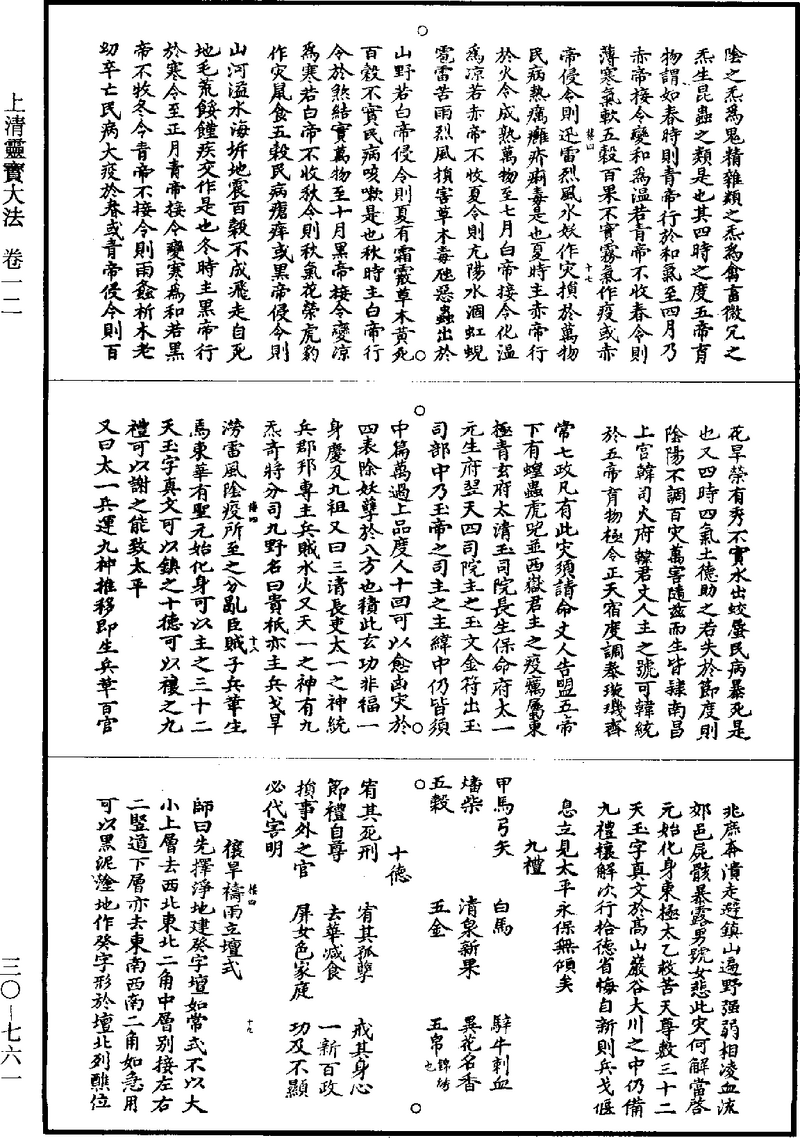 上清靈寶大法　卷一二
三〇—七六一
陰之炁爲鬼精雜類之炁爲禽畜微兄之
炁生昆蟲之類是也其四時之度五帝育
物謂如春時則青帝行於和氣至四月乃
赤帝接令變和爲溫若青帝不收春令則
薄寒氣軟五穀百果不實霧氣作疫或赤
帝侵令則迅雷烈風水妖作灾損於萬物
民病熱癘癰疥痢毒是也夏時主赤帝行
於火令成熟萬物至七月白帝接令化溫
爲凉若赤帝不收夏令則亢陽水涸虹蜺
雹雷苦雨烈風損害草木毒虺惡蟲出於
山野若白帝侵令則夏有霜霰草木黃死
百穀不實民病咳嗽是也秋時主白帝行
令於煞結實萬物至十月黑帝接令變凉
爲寒若白帝不收秋令則秋氣花榮虎豹
作灾鼠食五穀民病瘡痒或黑帝侵令則
山河溢水海坼地震百穀不成飛走自死
地毛荒餒饉疾交作是也冬時主黑帝行
於寒令至正月青帝接令變寒爲和若黑
帝不收冬令青帝不接令則雨螽析木老
幼卒亡民病大疫於春或青帝侵令則百
花早榮有秀不實水出蛟蜃民病暴死是
也又四時四氣土德助之若失於節度則
陰陽不調百灾萬害隨茲而生皆隸南昌
上宮韓司火府韓君丈人主之號可韓統
於五帝育物極令正天宿度調泰璇璣齊
常七政凡有此灾須請命丈人告盟五帝
下有蝗蟲虎兕並西嶽君主之疫癘屬東
極青玄府太清玉司院長生保命府太一
元生府翌天四司院主之玉文金符出玉
司部中乃玉帝之司主之主緯中仍皆須
中篇萬過上品度人十回可以愈凶灾於
四表除妖孽於八方也積此玄功非福一
身慶及九祖又曰三清長吏太一之神統
兵郡邦專主兵賊水火又天一之神有九
炁奇將分司九野名曰貴祇亦主兵戈旱
澇雷風陰疫所至之分亂臣賊子兵革生
馬東華有聖元始化身可以主之三十二
天玉字真文可以鎮之十德可以禳之九
禮可以謝之能致太平
又曰太一兵運九神推移即生兵革百官
兆庶奔潰走避鎮山遍野强弱相凌血流
郊邑屍骸暴露男號女悲此灾何解當啓
元始化身東極太乙救苦天尊敷三十二
天玉字真文於高山巖谷大川之中仍備
九禮禳解次行拾德省悔自新則兵戈偃
息立見太平永保無傾矣
九禮
甲馬弓矢　白馬　騂牛刺血
燔柴　清泉新果　異花名香
五穀　五金　五帛錦綺也
十德
宥其死刑　宥其孤孽　戒其身心
節禮自尊　去華減食　一新百政
損事外之官　屏女色家庭　功及不顯
必代害明
禳旱禱雨立壇式
師曰先擇淨地建癸字壇如常式不以大
小上層去西北東北二角中層別接左右
二豎道下層亦去東南西南二角如急用
可以黑泥塗地作癸字形於壇北列醮位